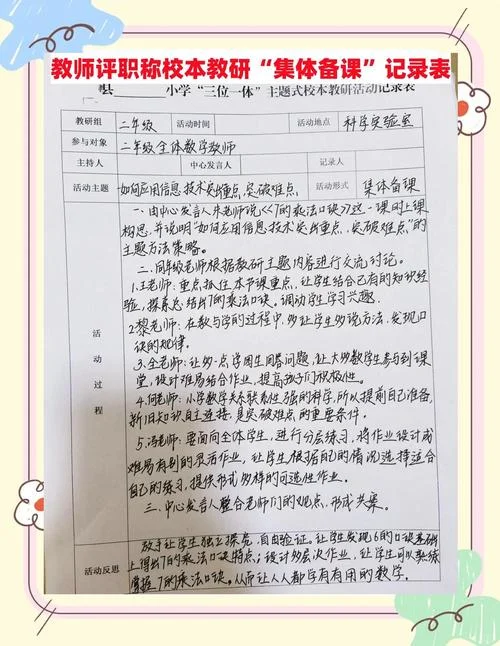 教师评职称校本教研“集体备课”记录表
县 小学“三位一体”主题式校本教研活动记录表
教研组 二年级 活动时间 活动地点 科学实验室
参与对象 二年级全体数学教师
主持人 中心发言人 记录人
活动主题 如何应用信息技术突出重点,突破难点 活动形式 集体备课
一.由中心发言人朱老师说《7的乘法口诀》这一课时上课
构思,并说明“如何应用信息技术突出重点,突破难点”的
主题方法策略。
二.同年级老师根据教研主题内容进行交流讨论。
1.王老师:重点抓住本节课重点,让学生结合已有的知识经
验,探索总结出7的乘法口诀。调动学生学习兴趣.
2黎老师:在教与学的过程中,多让学生多说方法,发现口
诀的规律.
3.全老师:让多一点学困生回答问题,让大多数学生参与到课
堂,设计难易结合作业,提高孩子们积极性。
4.何老师:小学数学关联系性强的科学,所以提前自己准备,
新旧知识自主连接,是突破难点的重要条件.
5.冯老师:要面向全体学生,进行分层练习,将作业设计成
难易有别的灵活作业,让学生根据自己的情况选择适合
自己的练习,提供形式多样的可选性作业.
三.中心发言人整合老师们的观点,形成共案.
活动过程
放手让学生独立探究,自由验证。让学生发现6的口诀基础
上得出7的乘法口诀特点;设计多层次作业,让学生可以熟练
掌握7的乘法口诀。从而让人人都学有有用的数学.
活动反思